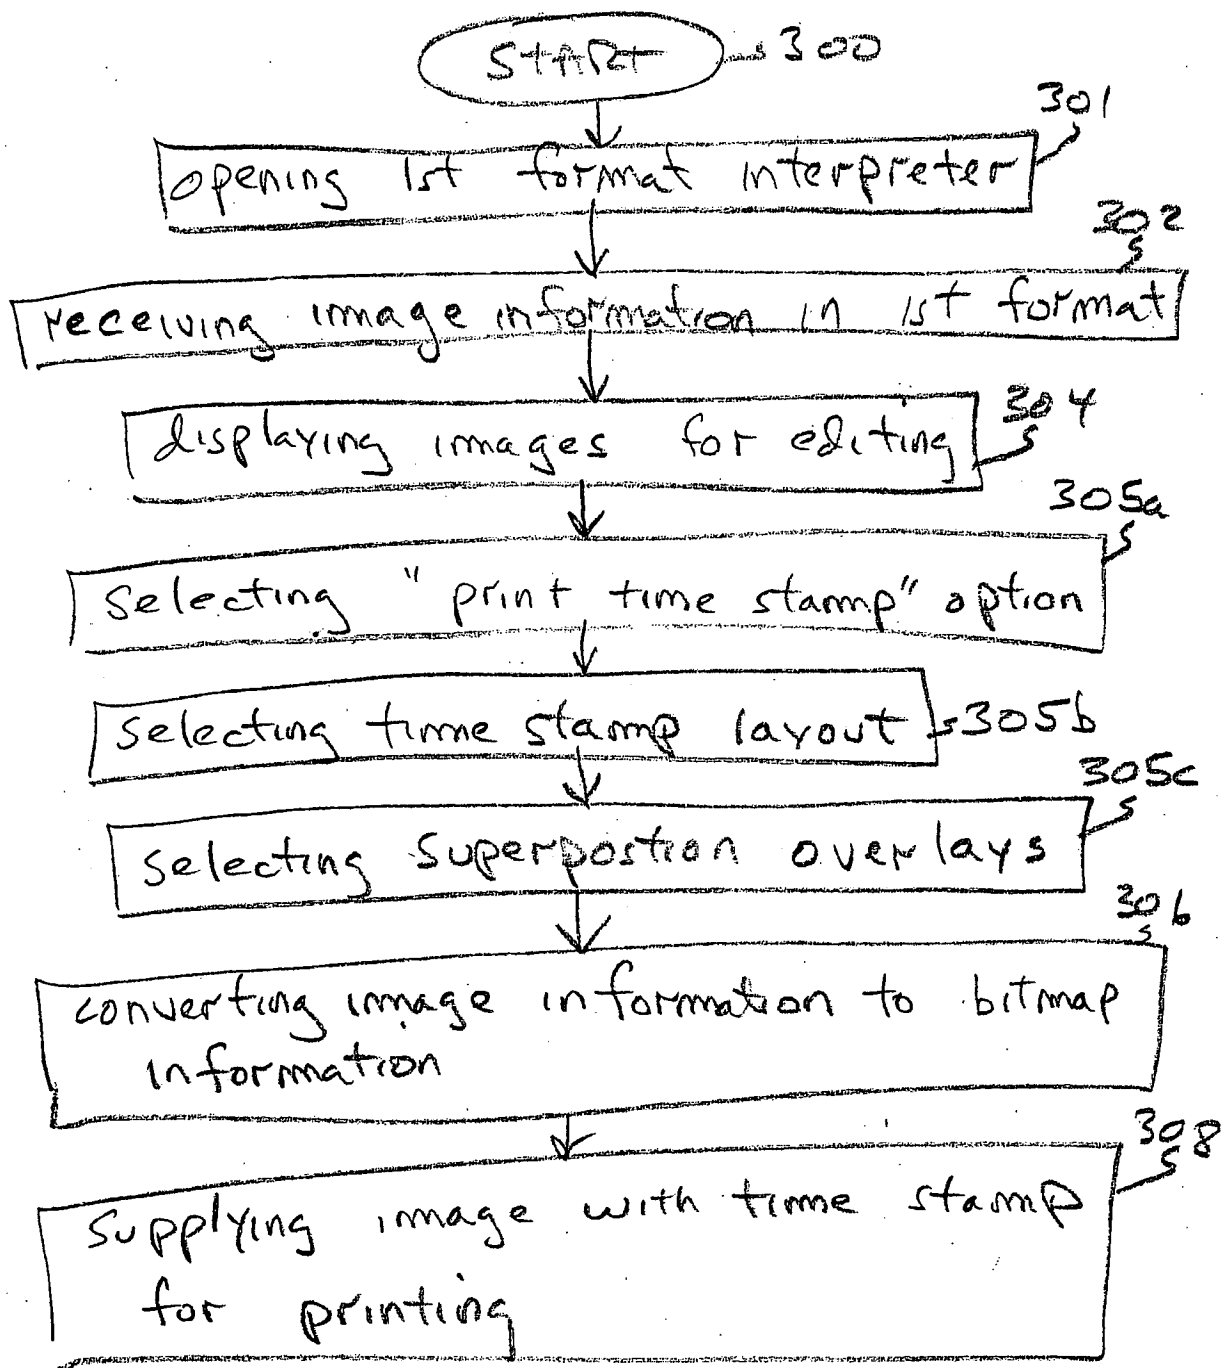 START 300
301
opening 1st format interpreter
302
receiving image information in 1st format
304
displaying images for editing
305a
selecting "print time stamp" option
selecting time stamp layout 305b
305c
selecting superpostion overlays
306
converting image information to bitmap
information
308
supplying image with time stamp
for printing